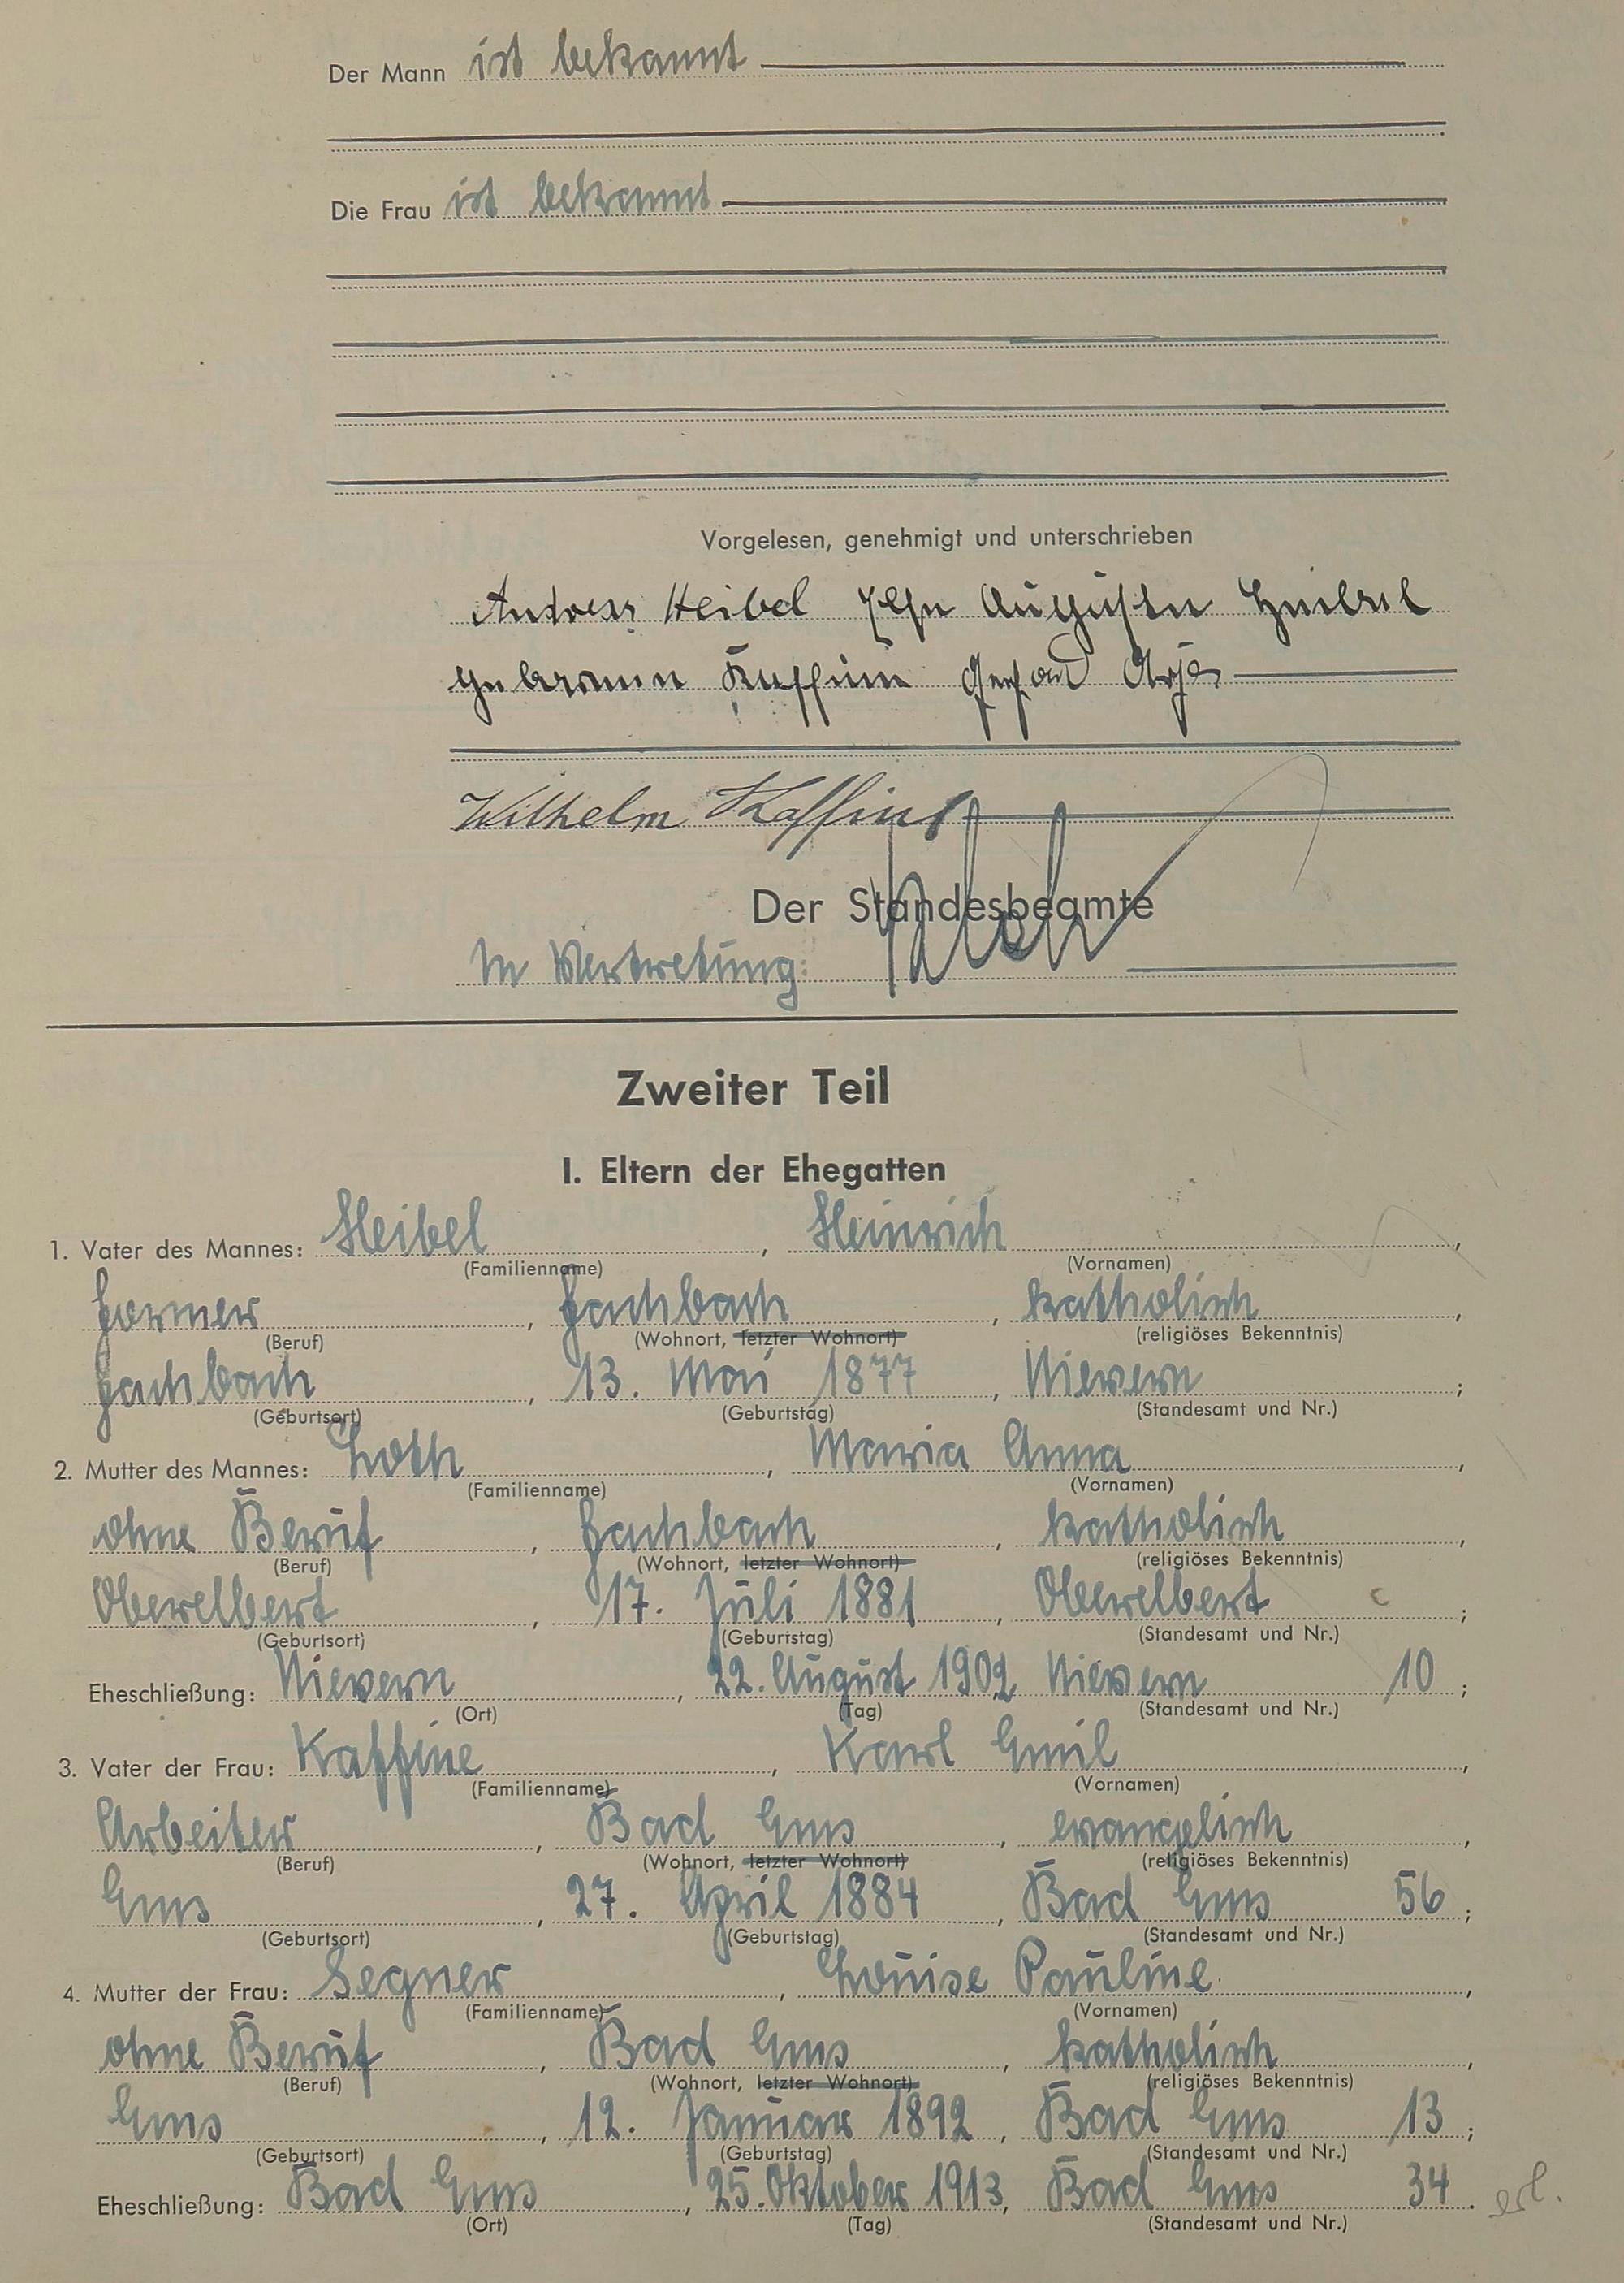 Der Mann ist bekannt
Die Frau ist bekannt
Vorgelesen, genehmigt und unterschrieben
Andreas Heibel Auguste Heibel
geborenne Kaffine
Wilhelm Kaffine
Der Standesbeamte
In Vertretung:
Zweiter Teil
I. Eltern der Ehegatten
1. Vater des Mannes: Heibel, Heinrich,
(Familienname) (Vornamen)
Former, Fachbach, katholisch,
(Beruf) (Wohnort, letzter Wohnort) (religiöses Bekenntnis)
Fachbach, 13. Mai 1877, Nievern;
(Geburtsort) (Geburtstag) (Standesamt und Nr.)
2. Mutter des Mannes: Loth, Maria Anna,
(Familienname) (Vornamen)
ohne Beruf, Fachbach, katholisch,
(Beruf) (Wohnort, letzter Wohnort) (religiöses Bekenntnis)
Oberelbert, 17. Juli 1881, Oberelbert;
(Geburtsort) (Geburtstag) (Standesamt und Nr.)
Eheschließung: Nievern, 22. August 1902 Nievern 10;
(Ort) (Tag) (Standesamt und Nr.)
3. Vater der Frau: Kaffine, Karl Emil,
(Familienname) (Vornamen)
Arbeiter, Bad Ems, evangelisch,
(Beruf) (Wohnort, letzter Wohnort) (religiöses Bekenntnis)
Ems, 27. April 1884, Bad Ems 56;
(Geburtsort) (Geburtstag) (Standesamt und Nr.)
4. Mutter der Frau: Segner, Louise Pauline,
(Familienname) (Vornamen)
ohne Beruf, Bad Ems, katholisch,
(Beruf) (Wohnort, letzter Wohnort) (religiöses Bekenntnis)
Ems, 12. Januar 1892, Bad Ems 13;
(Geburtsort) (Geburtstag) (Standesamt und Nr.)
Eheschließung: Bad Ems, 25. Oktober 1913, Bad Ems 34. erl.
(Ort) (Tag) (Standesamt und Nr.)